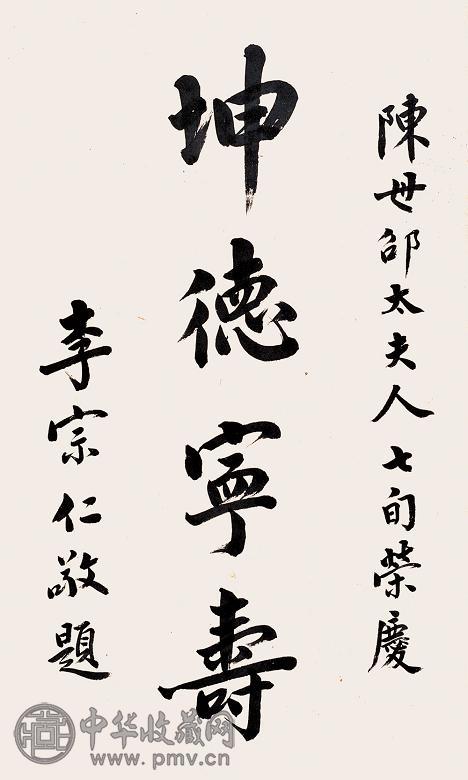 陳世邵太夫人七旬榮慶
坤德寧壽
李宗仁敬題
中华收藏网
www.pmv.cn